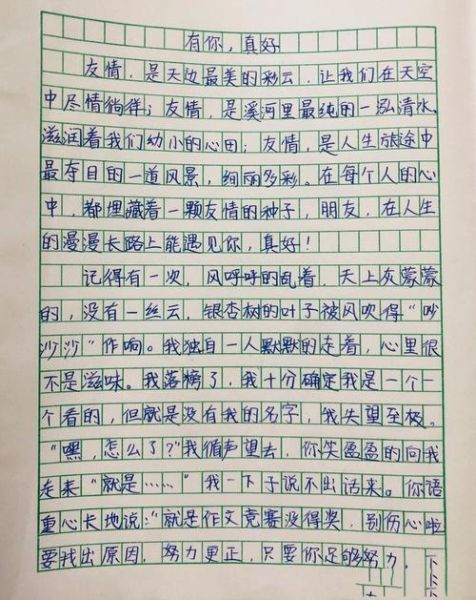 有你，真好
友情，是天边最美的彩云，让我们在天空
中尽情徜徉；友情，是溪河里最纯的一泓清水，
滋润着我们幼小的心田；友情，是人生旅途中
最夺目的一道风景，绚丽多彩。在每个人的心
中，都埋藏着一颗友情的种子，朋友，在人生
的漫漫长路上能遇见你，真好！
记得有一次，风呼呼的乱着，天上灰蒙蒙
的，没有一丝云，银杏树的叶子被风吹得“吵
沙沙”作响。我独自一人默默的走着，心里很
不是滋味。我落榜了，我十分确定我是一个一
个看的，但就是没有我的名字，我失望至极。
“嘿，怎么了？”我循声望去，你笑盈盈的向我
走来“就是……”我一下子说不出话来。你语
重心长地说：“就是作文竞赛没得奖，别伤心啦
要找出原因，努力更正，只要你足够努力，